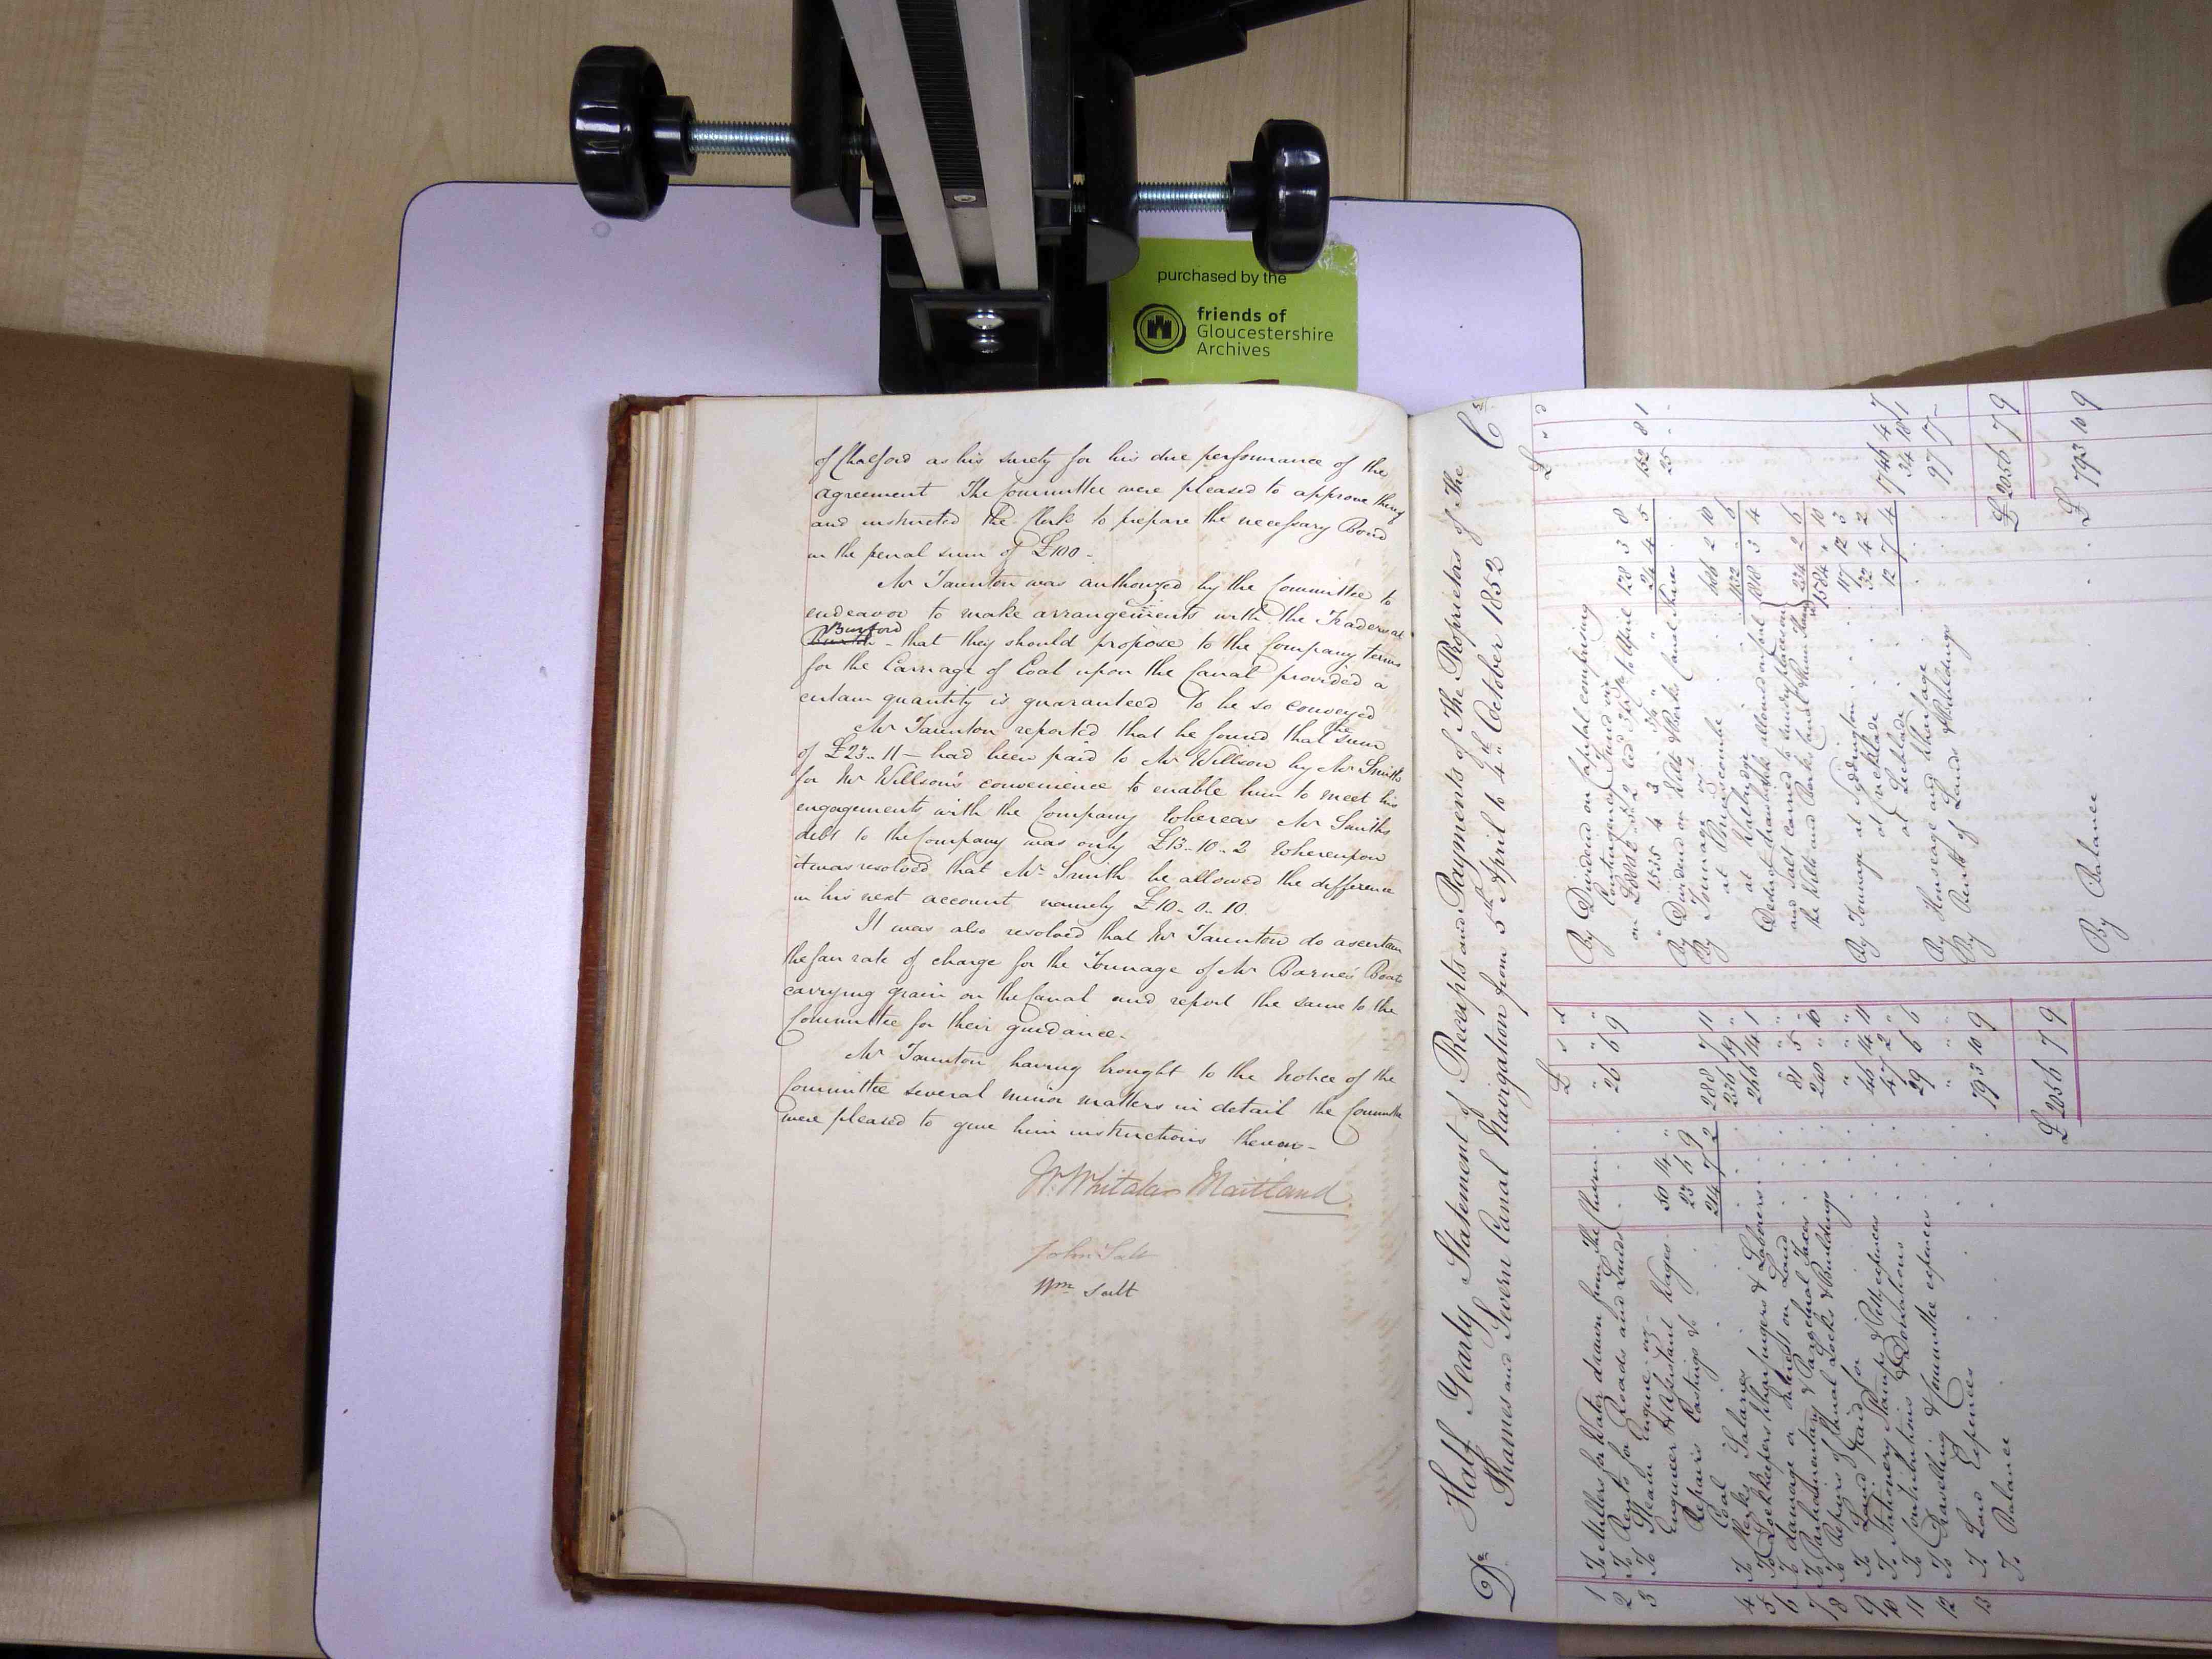 purchased by the
friends of
Gloucestershire
Archives
of Chalford as his surety for his due performance of the
agreement The Committee were pleased to approve thereof
and instructed the Clerk to prepare the necessary Bond
in the penal sum of £100 -
Mr Taunton was authorized by the Committee to
endeavor to make arrangements with the Traders at
Burford
- that they should propose to the Company terms
for the Carriage of Coal upon the Canal provided a
certain quantity is guaranteed to be so conveyed
Mr Taunton reported that he found that the sum
of £23.. 11 - had been paid to Mr Willson by Mr Smith
for Mr Willson's convenience to enable him to meet his
engagements with the Company Whereas Mr Smiths
debt to the Company was only £13.. 10.. 2 Whereupon
it was resolved that Mr Smith be allowed the difference
in his next account namely £10.. 0.. 10.
It was also resolved that Mr Taunton do ascertain
the fair rate of charge for the Tonnage of Mr Barnes' Boat
carrying grain on the Canal and report the same to the
Committee for their guidance.
Mr Taunton having brought to the Notice of the
Committee several minor matters in detail the Committee
were pleased to give him instructions thereon -
W. Whitaker Maitland
John Salt
Wm Salt
Dr Half Yearly Statement of Receipts and Payments of The Proprietors of The Cr
Thames and Severn Canal Navigation from 5th April to 4th October 1853
£ s d
1 To Millers for Water drawn from The Churn . " " "
2 To Rents for Roads and Lands . 26 6 9
3 To Steam Engine viz -
Engineer & Assistant Wages . 50 14 "
Repairs Castings &c 23 6 9
Coal 214 7 2 288 7 11
4 To Clerks Salaries . 236 19 "
5 To Lockkeepers Wharfingers & Laborers . 266 14 1
6 To damage or Interest on Land . " " "
7 To Parliamentary & Parochial Taxes . 81 5 "
8 To Repairs of Canal Locks & Buildings 240 " 6
9 To Land Paid for . " " "
10 To Stationery Stamps & Petty expences . 46 14 11
11 To Contributions & Donations . 47 2 "
12 To Travelling & Committee expences . 29 6 6
13 To Law Expences . " " "
To Balance . 793 10 9
£ 2056 7 9
£ " d
By Dividend on Capital comprising
Contingency Fund viz
128 3 8
24 4 5 152 8 1
By Dividend on Wilts & Berks Canal Shares 25 " "
By Tonnage viz
at Brimscombe . 686 2 10
at Walbridge 1132 " 6
1818 3 4
Deduct drawback allowed on Coal
and Salt carried to sundry places on
the Wilts and Berks Canal & Thames 234 2 6
1584 " 10
By Tonnage at Siddington . 117 12 3
at Cricklade . 32 4 2
at Lechlade . 12 7 4 1746 4 7
By Housage and Wharfage . 34 18 1
By Rents of Lands & Buildings . 97 17 -
£ 2056 7 9
By Balance . £ 793 10 9